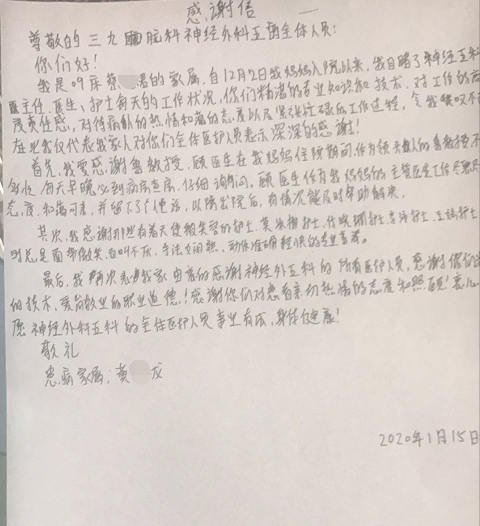 感谢信
尊敬的三九脑科神经外科五区全体人员:
你们好!
我是09床蔡 的家属.自12月2日我妈妈入院以来,我目睹了神经五科
主任、医生、护士每天的工作状况,你们精湛的专业知识和技术,对工作的高
度责任感,对待病人的热情和蔼的态度以及紧张忙碌的工作过程,令我赞叹不
在此我仅代表我家人对你们全体医护人员表示深深的感谢!
首先,我要感谢鲁教授,顾医生在我妈妈住院期间作为领
每天早晚必到病房查房,仔细询问。顾医生作为我妈妈的主管医生工作
态度和蔼可亲,并留下了个电话,以便出院后,有情况能及时帮助解决。
其次,我感谢那些有着天使般笑容的护士,
时总是面带微笑,百叫不厌,手法又娴熟,动作准确轻快的专业素养。
最后,我再次表我家由衷的感谢神经外五科的所有医护人员,感谢你们
的技术,爱岗敬业的职业道德!感谢你们对患者亲切热情的态度和照顾!衷心
愿神经外科五科的全体医护人员事业有成,身体健康!
敬礼
患病家属:黄 龙
2020年1月15日